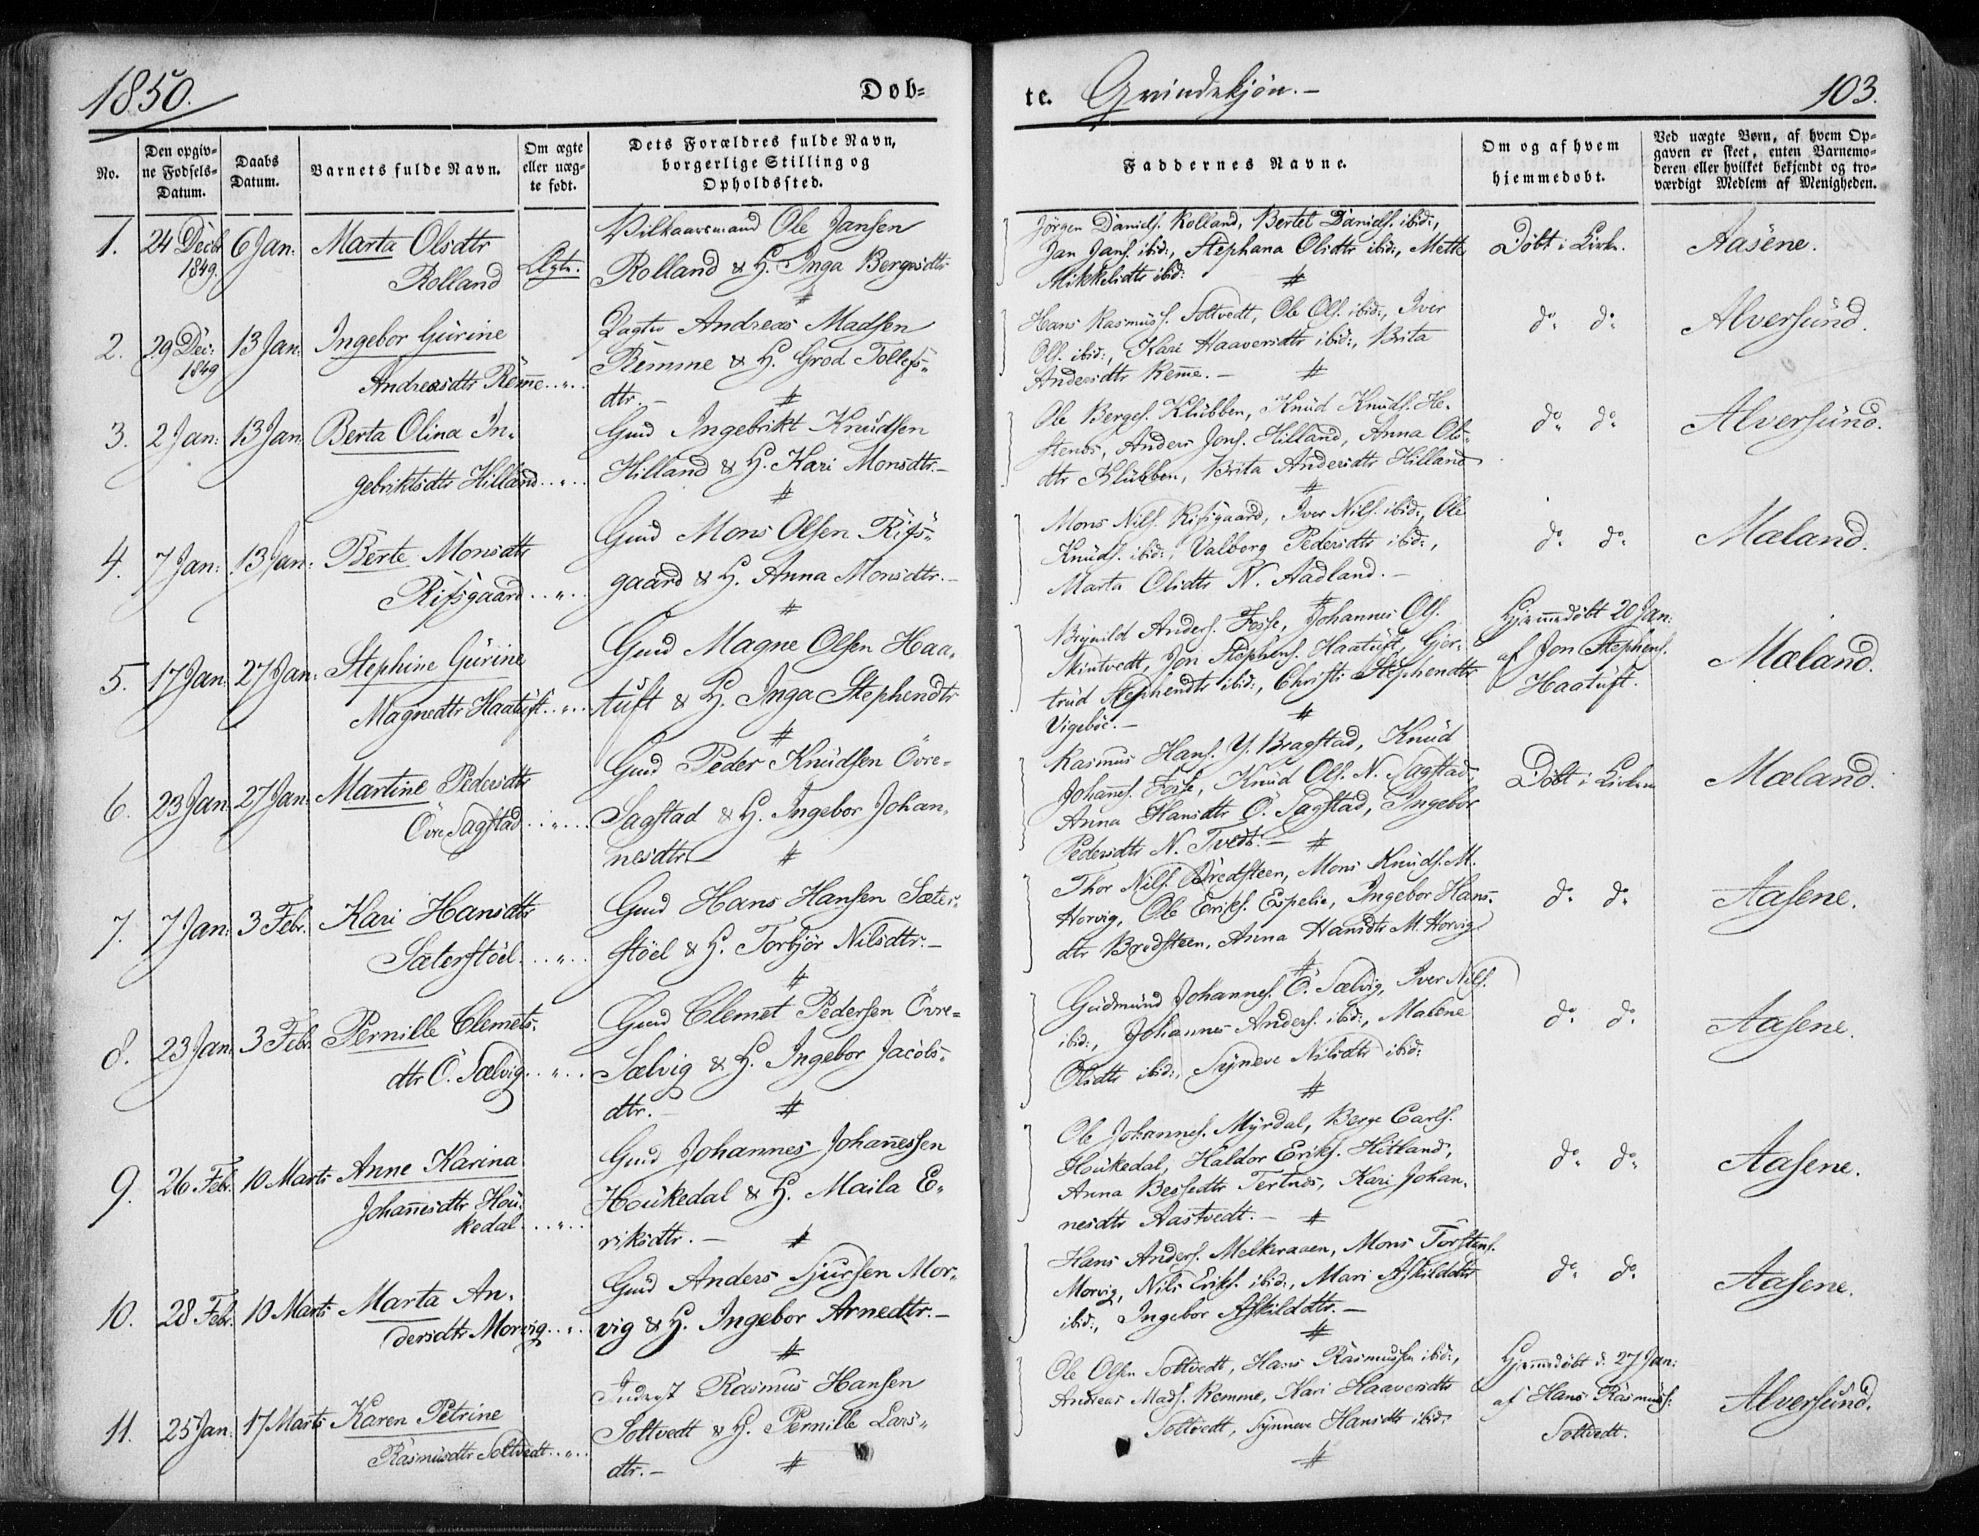 1850.
Døb-
te. Qvindekjøn.-
103.
No.
Den opgiv-
ne Fødsels-
Datum.
Daabs
Datum.
Barnets fulde Navn.
Om ægte
eller uæg-
te født.
Dets Forældres fulde Navn,
borgerlige Stilling og
Opholdssted.
Faddernes Navne.
Om og af hvem
hjemmedøbt.
Ved uægte Børn, af hvem Op-
gaven er skeet, enten Barnemo-
deren eller hvilket bekjendt og tro-
værdigt Medlem af Menigheden.
1. 24 Decb 1849. 6 Jan: Marta Olsdtr
Rolland
Ægte.
Vilkaarsmand Ole Jansen
Rolland & H. Inga Bergesdtr
#
Jørgen Daniels. Rolland, Bertel Daniels. ibid:,
Jan Jans. ibid:, Stephana Olsdtr ibid:, Mette
Mikkelsdtr ibid: #
Døbt i Kirk.
Aasene.
2. 29 Dec: 1849 13 Jan: Ingebor Gurine
Andreasdtr Remme..„..
Andreas Madsen
Remme & H. Grod Tollefs-
dtr.- #
Hans Rasmuss. Soltvedt, Ole Ols. ibid:, Iver
Ols. ibid:, Kari Haaversdtr ibid:, Brita
Andersdtr Remme.- #
do. do.
Alversund.
3. 2 Jan: 13 Jan Berta Olina In-
gebriktsdtr Hilland..„..
Gmd Ingebrikt Knudsen
Hilland & H. Kari Monsdtr.-
#
Ole Berges. Klubben, Knud Knuds. He-
stenes, Anders Jons. Hilland, Anna Ols-
dtr Klubben, Brita Andersdtr Hilland
#
do. do.
Alversund.
4. 7 Jan: 13 Jan: Berte Monsdtr
Rissgaard..„..
Gmd Mons Olsen Riss-
gaard & H. Anna Monsdtr.-
#
Mons Nils. Risgaard, Iver Nils. ibid:, Ole
Knuds. ibid:, Valborg Pedersdtr ibid:,
Marta Olsdtr N. Aadland.-
#
do. do.
Mæland.
5. 17 Jan 27 Jan: Stephine Gurine
Magnedtr Haatuft..„..
Gmd Magne Olsen Haa-
tuft & H. Inga Stephendtr
#
Brynild Anders. Fosse, Johannes Ols.
Skintvedt, Jon Stephens. Haatuft, Gjer-
trud Stephendtr ibid:, Christi Stephendtr
Vigebøe.- #
Hjemmedøbt 20 Jan:
af Jon Stephens.
Haatuft.
Mæland.
6. 23 Jan 27 Jan: Martine Pedersdtr
Øvre Sagstad..„..
Gmd Peder Knudsen Øvre-
Sagstad & H. Ingebor Johan-
nesdtr #
Rasmus Hans. Y. Bragstad, Knud
Johans. Fosse, Knud Ols. N. Sagstad,
Anna Hansdtr Ø. Sagstad, Ingebor
Pedersdtr N. Tvedt.- #
Døbt i Kirken
Mæland.
7. 7 Jan: 3 Febr. Kari Hansdtr
Sæterstøel..„..
Gmd Hans Hansen Sæter-
støel & H. Torbjør Nilsdtr.-
#
Thor Nils. Bredsteen, Mons Knuds. M.
Horvig, Ole Eriks. Espelie, Ingebor Hans-
dtr Bredsteen, Anna Hansdtr M. Horvig
#
do. do.
Aasene.
8. 23 Jan: 3 Febr. Pernille Clemets-
dtr Ø. Sælvig..„..
Gmd Clemet Pedersen Øvre-
Sælvig & H. Ingebor Jacobs-
dtr.- #
Gudmund Johannes. Ø. Sælvig, Iver Nils.
ibid:, Johannes Anders. ibid:, Malene
Olsdtr ibid:, Syneve Nilsdtr ibid:
#
do. do.
Aasene.
9. 26 Feb. 10 Marts Anne Karina
Johannesdtr Hou-
kedal..„..
Gmd Johannes Johannessen
Houkedal & H. Maila E-
riksdtr.- #
Ole Johannes. Myrdal, Berge Carls.
Houkedal, Haldor Eriks. Hitland,
Anna Bessedtr Tertnes, Kari Johan-
nesdtr Aastvedt.- #
do. do.
Aasene.
10. 28 Feb. 10 Marts Marta An-
dersdtr Morvig..„..
Gmd Anders Sjursen Mor-
vig & H. Ingebor Arnedtr.-
#
Hans Anders. Melkeraaen, Mons Torstens.
Morvig, Nils Eriks. ibid:, Mari Askildsdtr
ibid:, Ingebor Askildsdtr.-
#
do. do.
Aasene.
11. 25 Jan: 17 Marts Karen Petrine
Rasmusdtr Soltvedt..„..
Rasmus Hansen
Soltvedt & H. Pernille Lars-
dtr.- #
Ole Olsen Soltvedt, Hans Rasmussen ibid:,
Andreas Mads. Remme, Kari Haaversdtr
Soltvedt, Synneve Hansdtr ibid:
#
Hjemmedøbt d. 27 Jan:
af Hans Rasmuss.
Soltvedt.
Alversund.